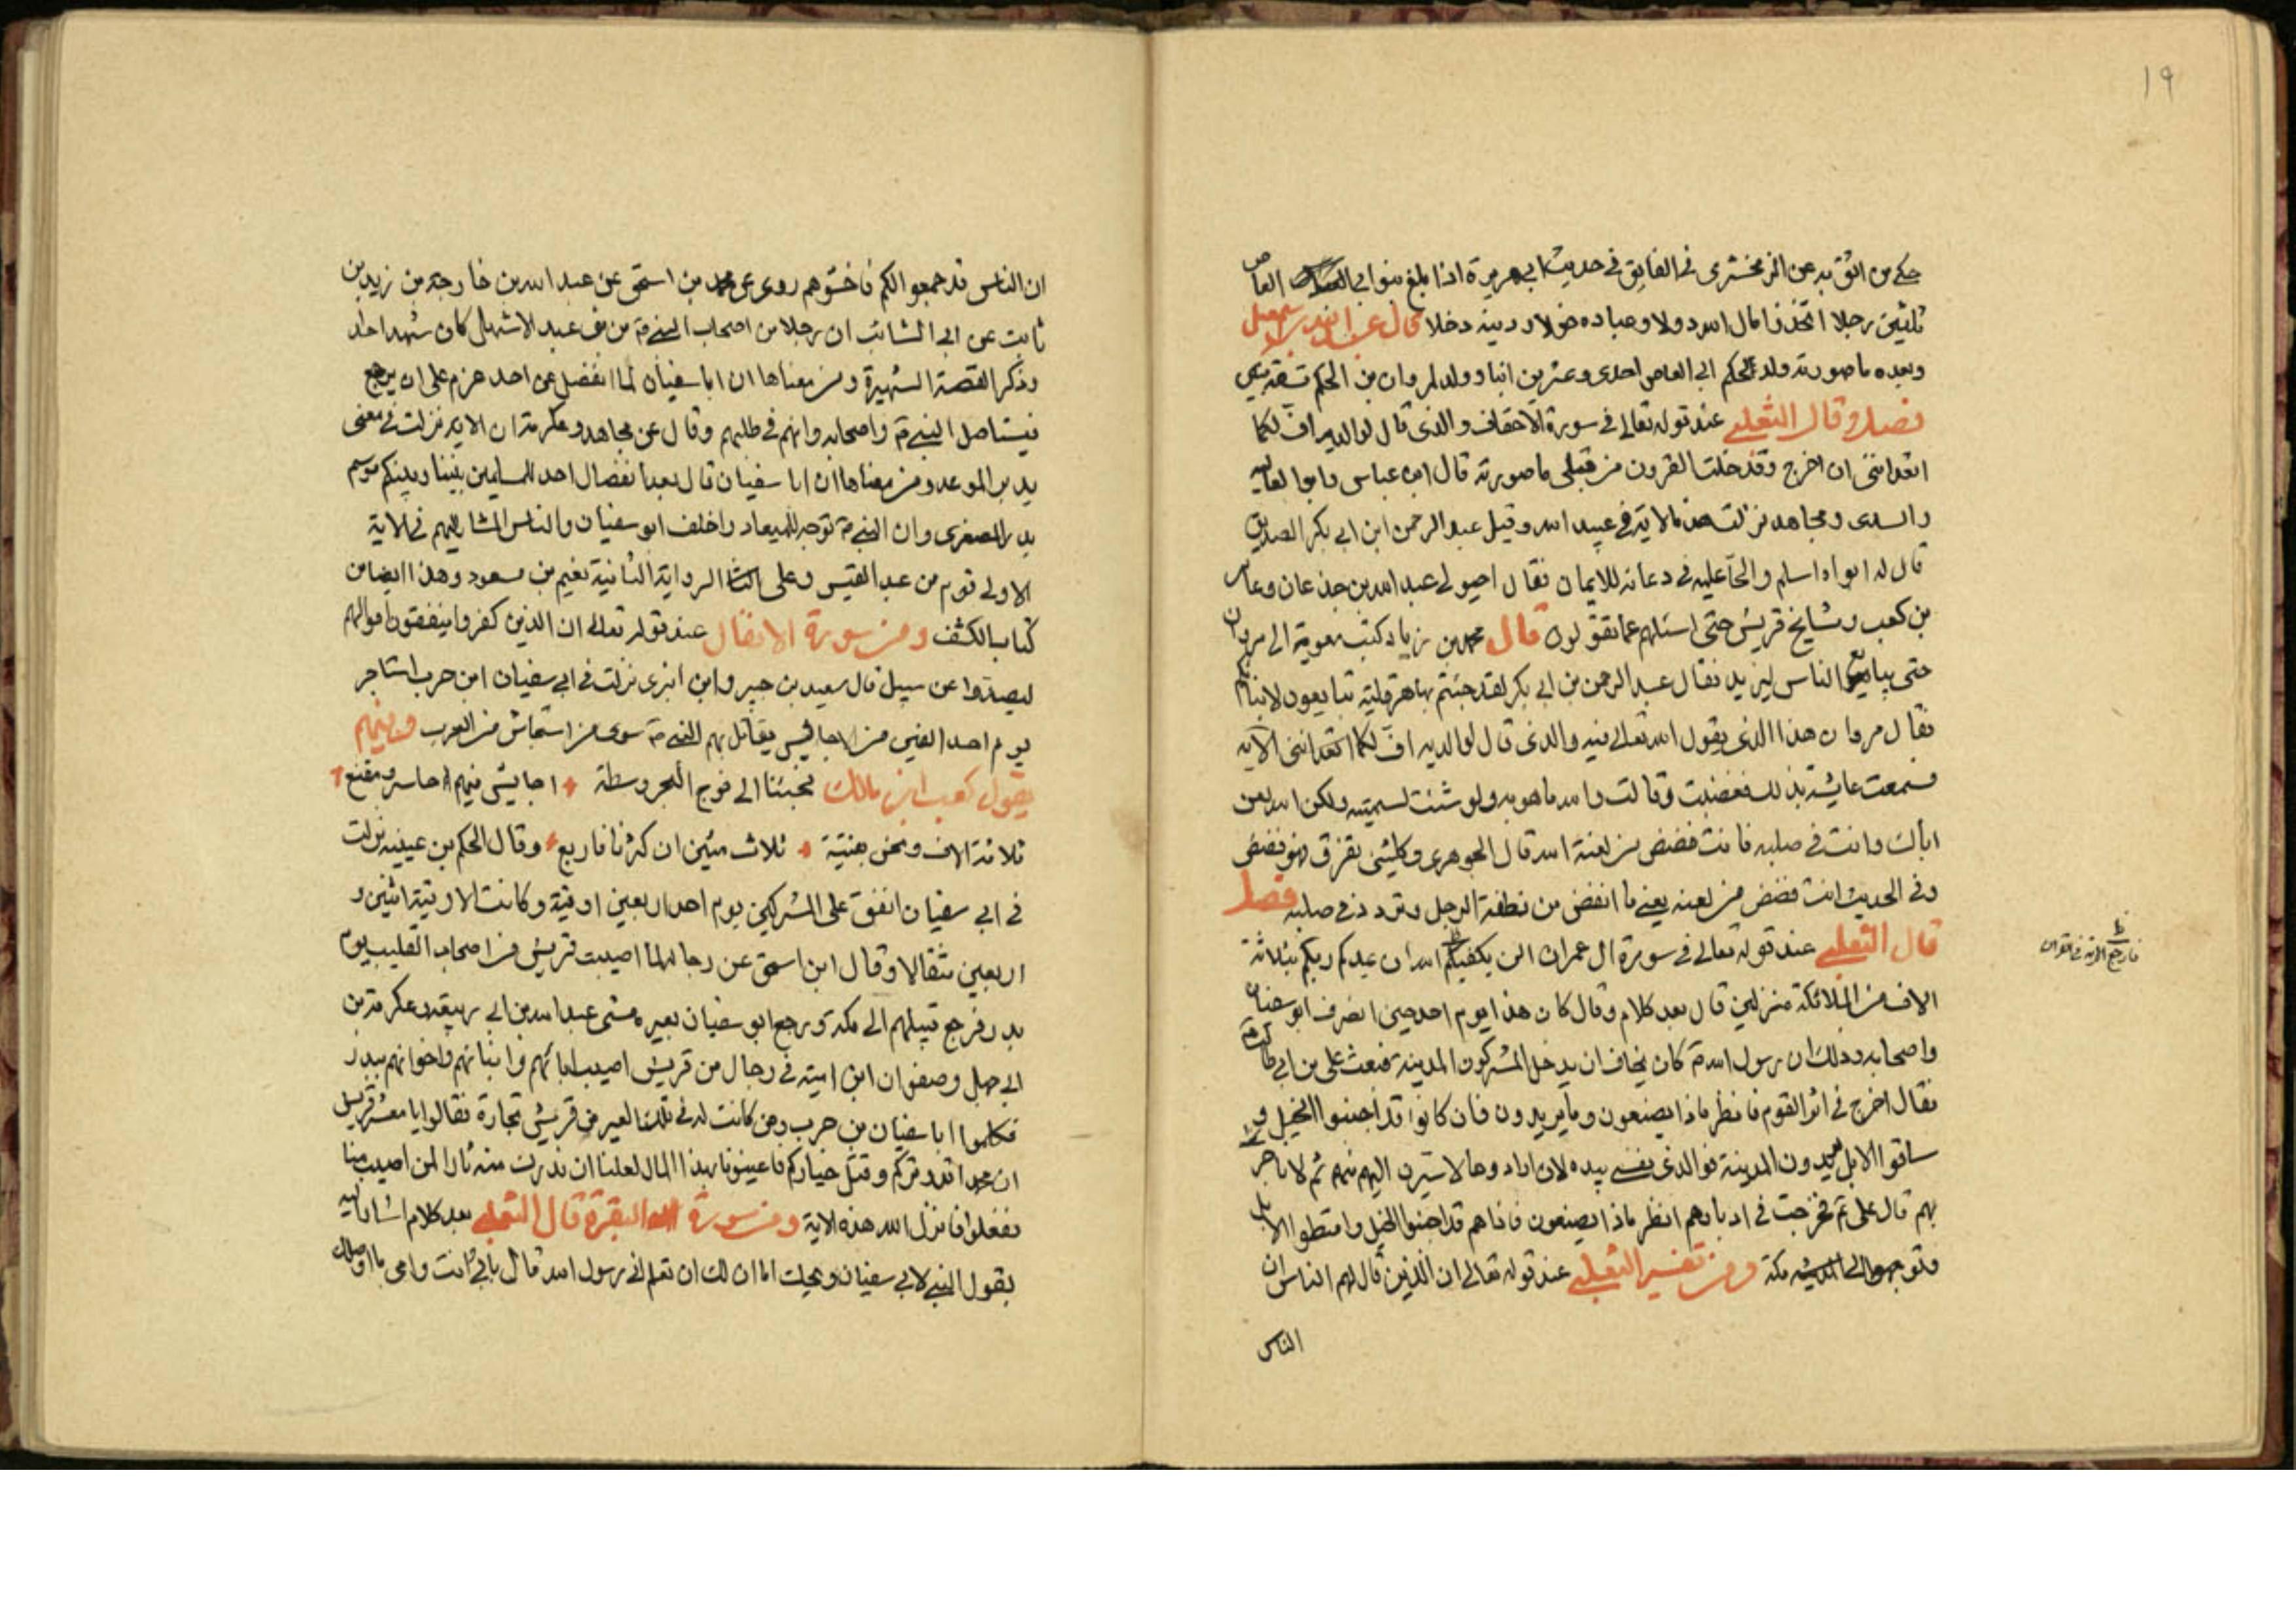 ١٩
حكى من اثق به عن الزمخشري في الفايق في حديث ابي هريرة اذا بلغ بنوا ابي العاص
ثلثين رجلا اتخذوا مال الله دولا وعباده خولا ودينه دخلا قال عبد الله بن اسمعيل
وبعده ما صورته ولد الحكم ابي العاص احدى وعشرين ابنا وولد لمروان بن الحكم تسعة بنين
فصل وقال الثعلبي عند قوله تعالى في سورة الاحقاف والذي قال لوالديه اف لكما
اتعدانني ان اخرج وقد خلت القرون من قبلي ما صورته قال ابن عباس وابوا لعاليه
والسدي ومجاهد نزلت هذه الاية في عبيد الله وقيل عبد الرحمن ابن ابي بكر الصديق
قال له ابواه اسلم والحا عليه في دعائه للايمان فقال احيوا لي عبد الله بن جذعان وعامر
بن كعب ومشايخ قريش حتى اسئلهم عما تقولون قال محمد بن زياد كتب معوية الى مروان
حتى يبايع الناس ليزيد فقال عبد الرحمن بن ابي بكر لقد جئتم بها هرقلية تبايعون لابنائكم
فقال مروان هذا الذي يقول الله تعالى فيه والذي قال لوالديه اف لكما اتعدانني الاية
فسمعت عايشة بذلك فغضبت وقالت والله ما هو به ولو شئت لسميته ولكن الله لعن
اباك وانت في صلبه فانت فضض من لعنة الله قال الجوهري وكلشئ تفرق فهو فضض
وفي الحديث انت فضض من لعنه يعني ما انفض من نطفة الرجل وتردد في صلبه فصل
قال الثعلبي عند قوله تعالى في سورة ال عمران الن يكفيكم ان يمدكم ربكم بثلاثة
الاف من الملائكة منزلين قال بعد كلام وقال كان هذا يوم احد حين انصرف ابو سفيان
واصحابه وذلك ان رسول الله كان يخاف ان يدخل المشركون المدينة فبعث علي بن ابي طالب
فقال اخرج في اثر القوم فانظر ماذا يصنعون وما يريدون فان كانوا قد اجنبوا الخيل و
ساقوا الابل يريدون المدينة فو الذي نفسي بيده لان ارادوها لاسيرن اليهم فيهم ثم لاناجز
بهم قال علي فخرجت في ادبارهم انظر ماذا يصنعون فاذا هم قد اجنبوا الخيل وامتطوا الابل
وتوجهوا الى مكة ومن تفسير الثعلبي عند قوله تعالى ان الذين قال لهم الناس ان
الناس
فارجع الاية في القران
ان الناس قد جمعوا لكم فاخشوهم روى عن محمد بن اسحق عن عبد الله بن خارجة بن زيد بن
ثابت عن ابي السائب ان رجلا من اصحاب النبي من بني عبد الاشهل كان شهد احدا
وذكر القصة الشهيرة ومن معناها ان ابا سفيان لما انفصل عن احد عزم على ان يرجع
فيستاصل النبي واصحابه وانهم في طلبهم وقال عن مجاهد وعكرمة ان الاية نزلت في معنى
بدر الموعد ومن معناها ان ابا سفيان قال بعد انفصال احد للمسلمين بيننا وبينكم موسم
بدر الصغرى وان النبي توجه للميعاد واخلف ابو سفيان والناس المشار اليهم في الاية
الاولى قوم من عبد القيس وعلى الرواية الثانية نعيم بن مسعود وهذا ايضا من
كتاب الكشف ومن سورة الانفال عند قوله تعالى ان الذين كفروا ينفقون اموالهم
ليصدوا عن سبيل قال سعيد بن جبير وابن ابزى نزلت في ابي سفيان ابن حرب استاجر
يوم احد الفين من الاحابيش يقاتل بهم النبي سوى من استجاش من العرب وفيهم
يقول كعب ابن مالك فجئنا الى موج البحر وسطة احابيش فيهم حاسر ومقنع
ثلاثة الاف ونحن بقية ثلاث مئين ان كثرنا فاربع وقال الحكم بن عيينه نزلت
في ابي سفيان انفق على المشركين يوم احد اربعين اوقية وكانت الاوقية اثنين و
اربعين مثقالا وقال ابن اسحق عن رجاله لما اصيبت قريش من اصحاب القليب يوم
بدر فرجع فيلهم الى مكة ورجع ابو سفيان بعيره مشى عبد الله بن ابي ربيعة وعكرمة بن
ابي جهل وصفوان ابن امية في رجال من قريش اصيب ابائهم وابنائهم واخوانهم ببدر
فكلموا ابا سفيان بن حرب ومن كانت له في تلك العير من قريش تجارة فقالوا يا معشر قريش
ان محمدا قد وتركم وقتل خياركم فاعينونا بهذا المال لعلنا ان ندرك منه ثارا لمن اصيب منا
ففعلوا فانزل الله هذه الاية ومن سورة البقرة قال الثعلبي بعد كلام اشار اليه
يقول النبي لابي سفيان ويحك اما ان لك ان تعلم اني رسول الله قال بابي انت وامي ما اوصلك